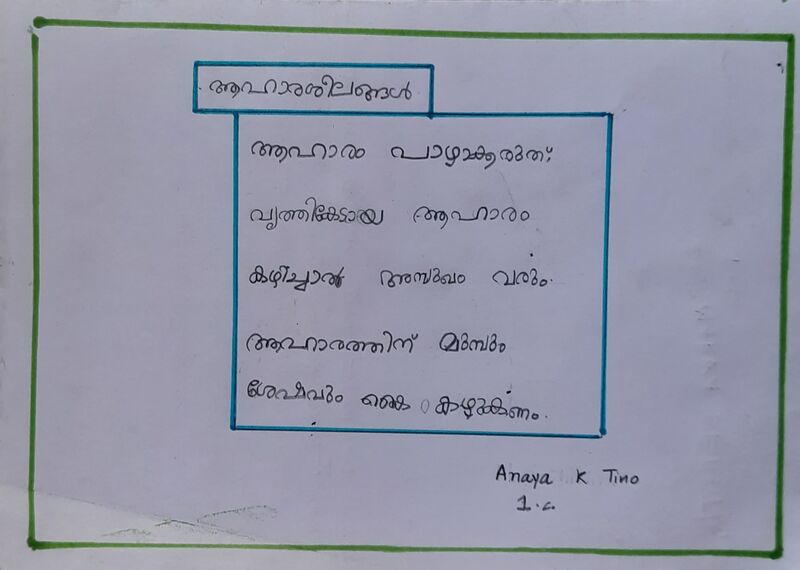 ആഹാരശീലങ്ങൾ
ആഹാരം പാഴാക്കരുത്.
വൃത്തികേടായ ആഹാരം
കഴിച്ചാൽ അസുഖം വരും.
ആഹാരത്തിന് മുമ്പും
ശേഷവും കൈ കഴുകണം.
Anaya K Tino
1.c